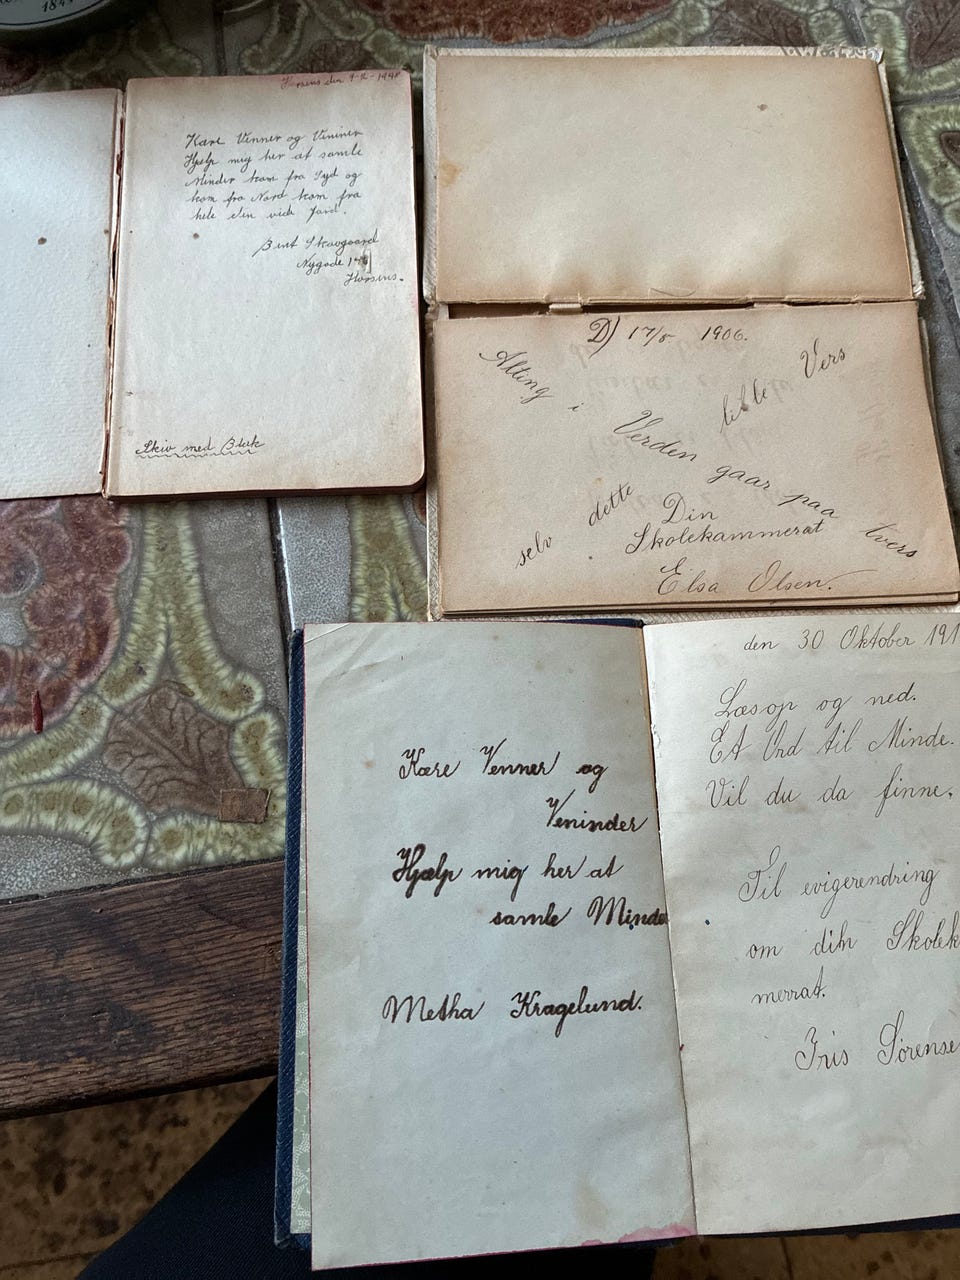 184
den 9-12-194
Kære Venner og Veninner
Hjælp mig her at samle
Minder kom fra Syd og
kom fra Nord kom fra
hele den vide Jord.
Bent Skovgaard
Nygade
Horsens.
Skriv med Blæk
D) 17/5 1906.
Alting i Verden gaar paa tvers
selv dette lille Vers
Din
Skolekammerat
Elsa Olsen.
Kære Venner og
Veninder
Hjælp mig her at
samle Minde
Metha Kragelund.
den 30 Oktober 191
Læs op og ned.
Et Ord til Minde.
Vil du da finne.
Til evigerendring
om din Skolek
merrat.
Iris Sørense